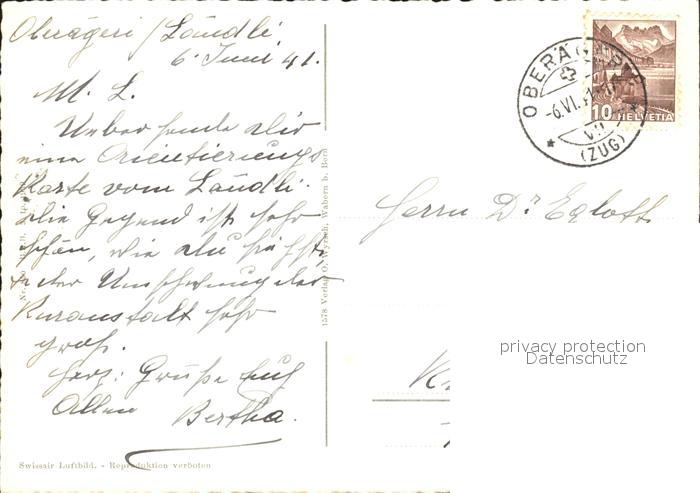 Oberägeri / Ländli
6. Juni 41.
M. L.
Uebersende Dir
eine Orientierungs
Karte vom Ländli.
Die Gegend ist sehr
schön, wie Du siehst,
der Umschwung der
Kuranstalt sehr
groß.
Herz: Grüße Euch
Allen Bertha.
Swissair Luftbild. - Reproduktion verboten
1578 Verlag O. Wyrsch, Wabern b. Bern
OBERÄGERI
-6.VI.
VII
(ZUG)
10 HELVETIA
Herrn Dr. Egloff
privacy protection
Datenschutz